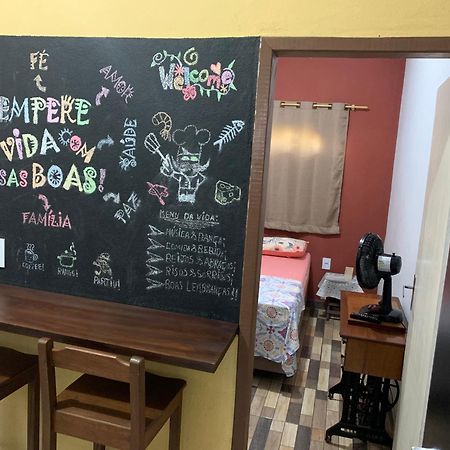 FÉ
AMOR
Welcome
EMPERE
VIDA COM
SAÚDE
SAS BOAS!
PAZ
FAMÍLIA
MENU DA VIDA:
MÚSICA & DANÇA;
COMIDA & BEBIDA;
BEIJOS & ABRAÇOS;
RISOS & SORRISOS;
BOAS LEMBRANÇAS!!
COFFEE!